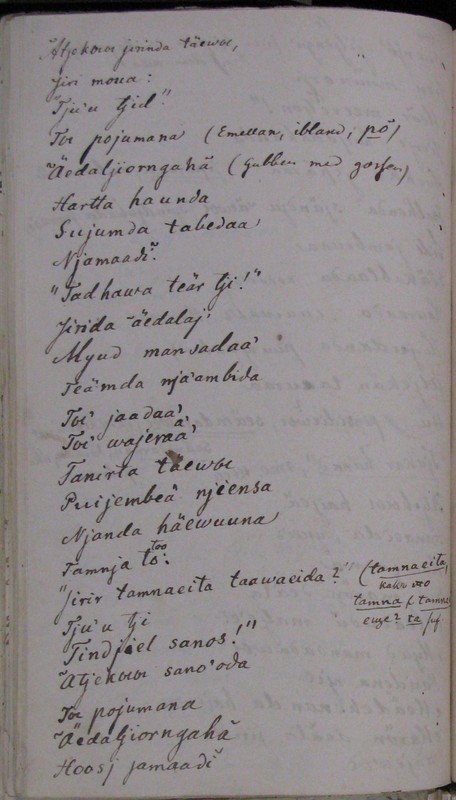 Ätjekoːoː jirinda täewoe,
Jiri mova:
"Tju'u tjid"
Toe pojumana (Emellan, ibland, på)
Äedaljiorngahä (Gubben med gossen)
Hartta haunda
Sujumda tabedaa
Njamaadi.
"Tadhawa teär tji!"
Jirida äedalaj
Myud mansadaa
Teämda nja'ambida
Toe' jaadaa'
Toe' wajeraa'
Tanirta täewoe
Puijembeä njeensa
Njanda häewuuna
Tamnja to: too
"Jirir tamnaeita taawaeida?" (tamnaeita,
tamna
Tju'u tji
Tindjiel sanos!"
Ätjekoːoː sano'oda
Toe pojumana
Äedaljiorngahä
Hoosj jamaadi